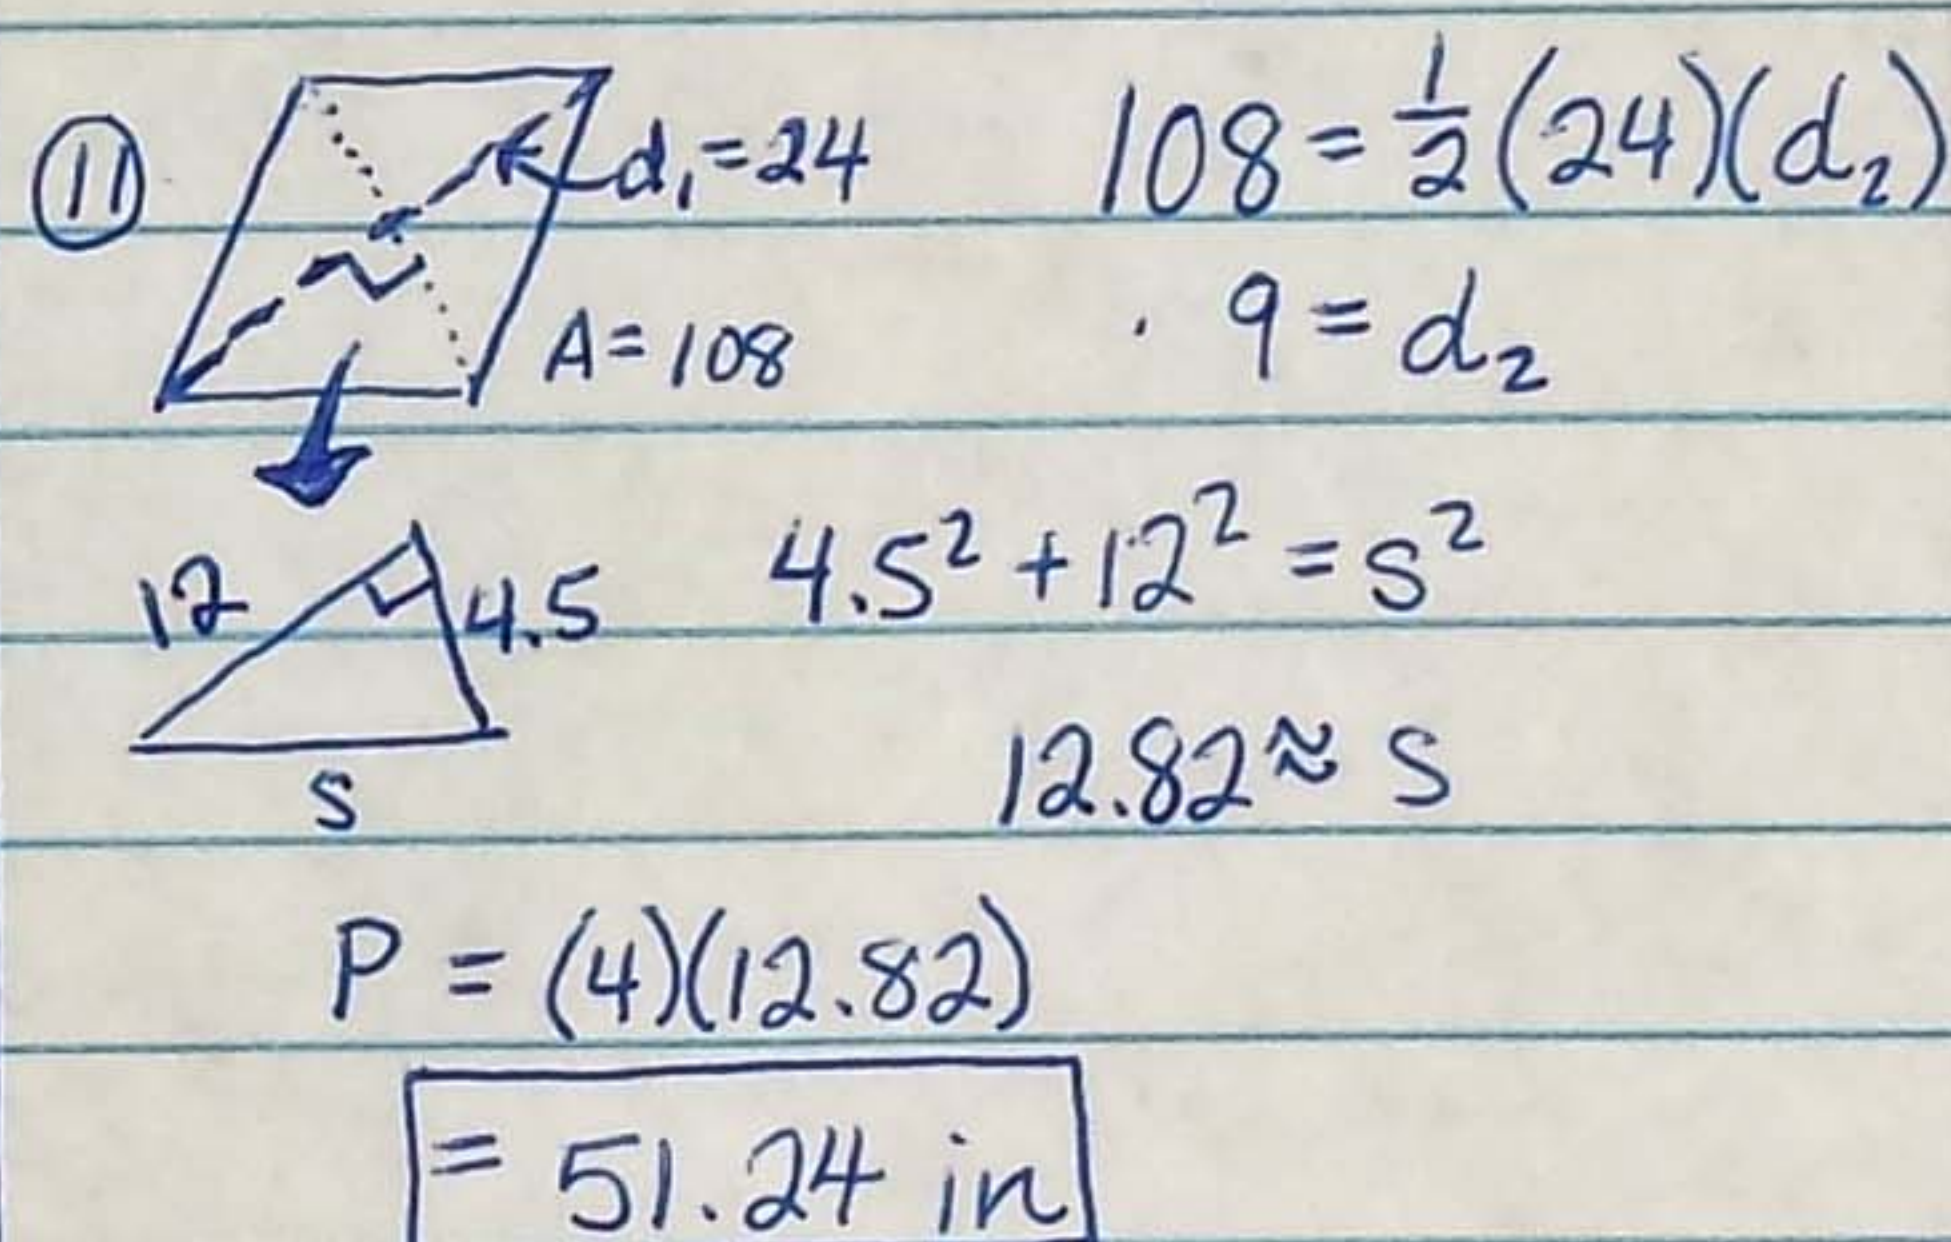 ⑪ d₁ = 24
A = 108
108 = 1/2 (24)(d₂)
9 = d₂
12 4.5
s
4.5² + 12² = s²
12.82 ≈ s
P = (4)(12.82)
= 51.24 in